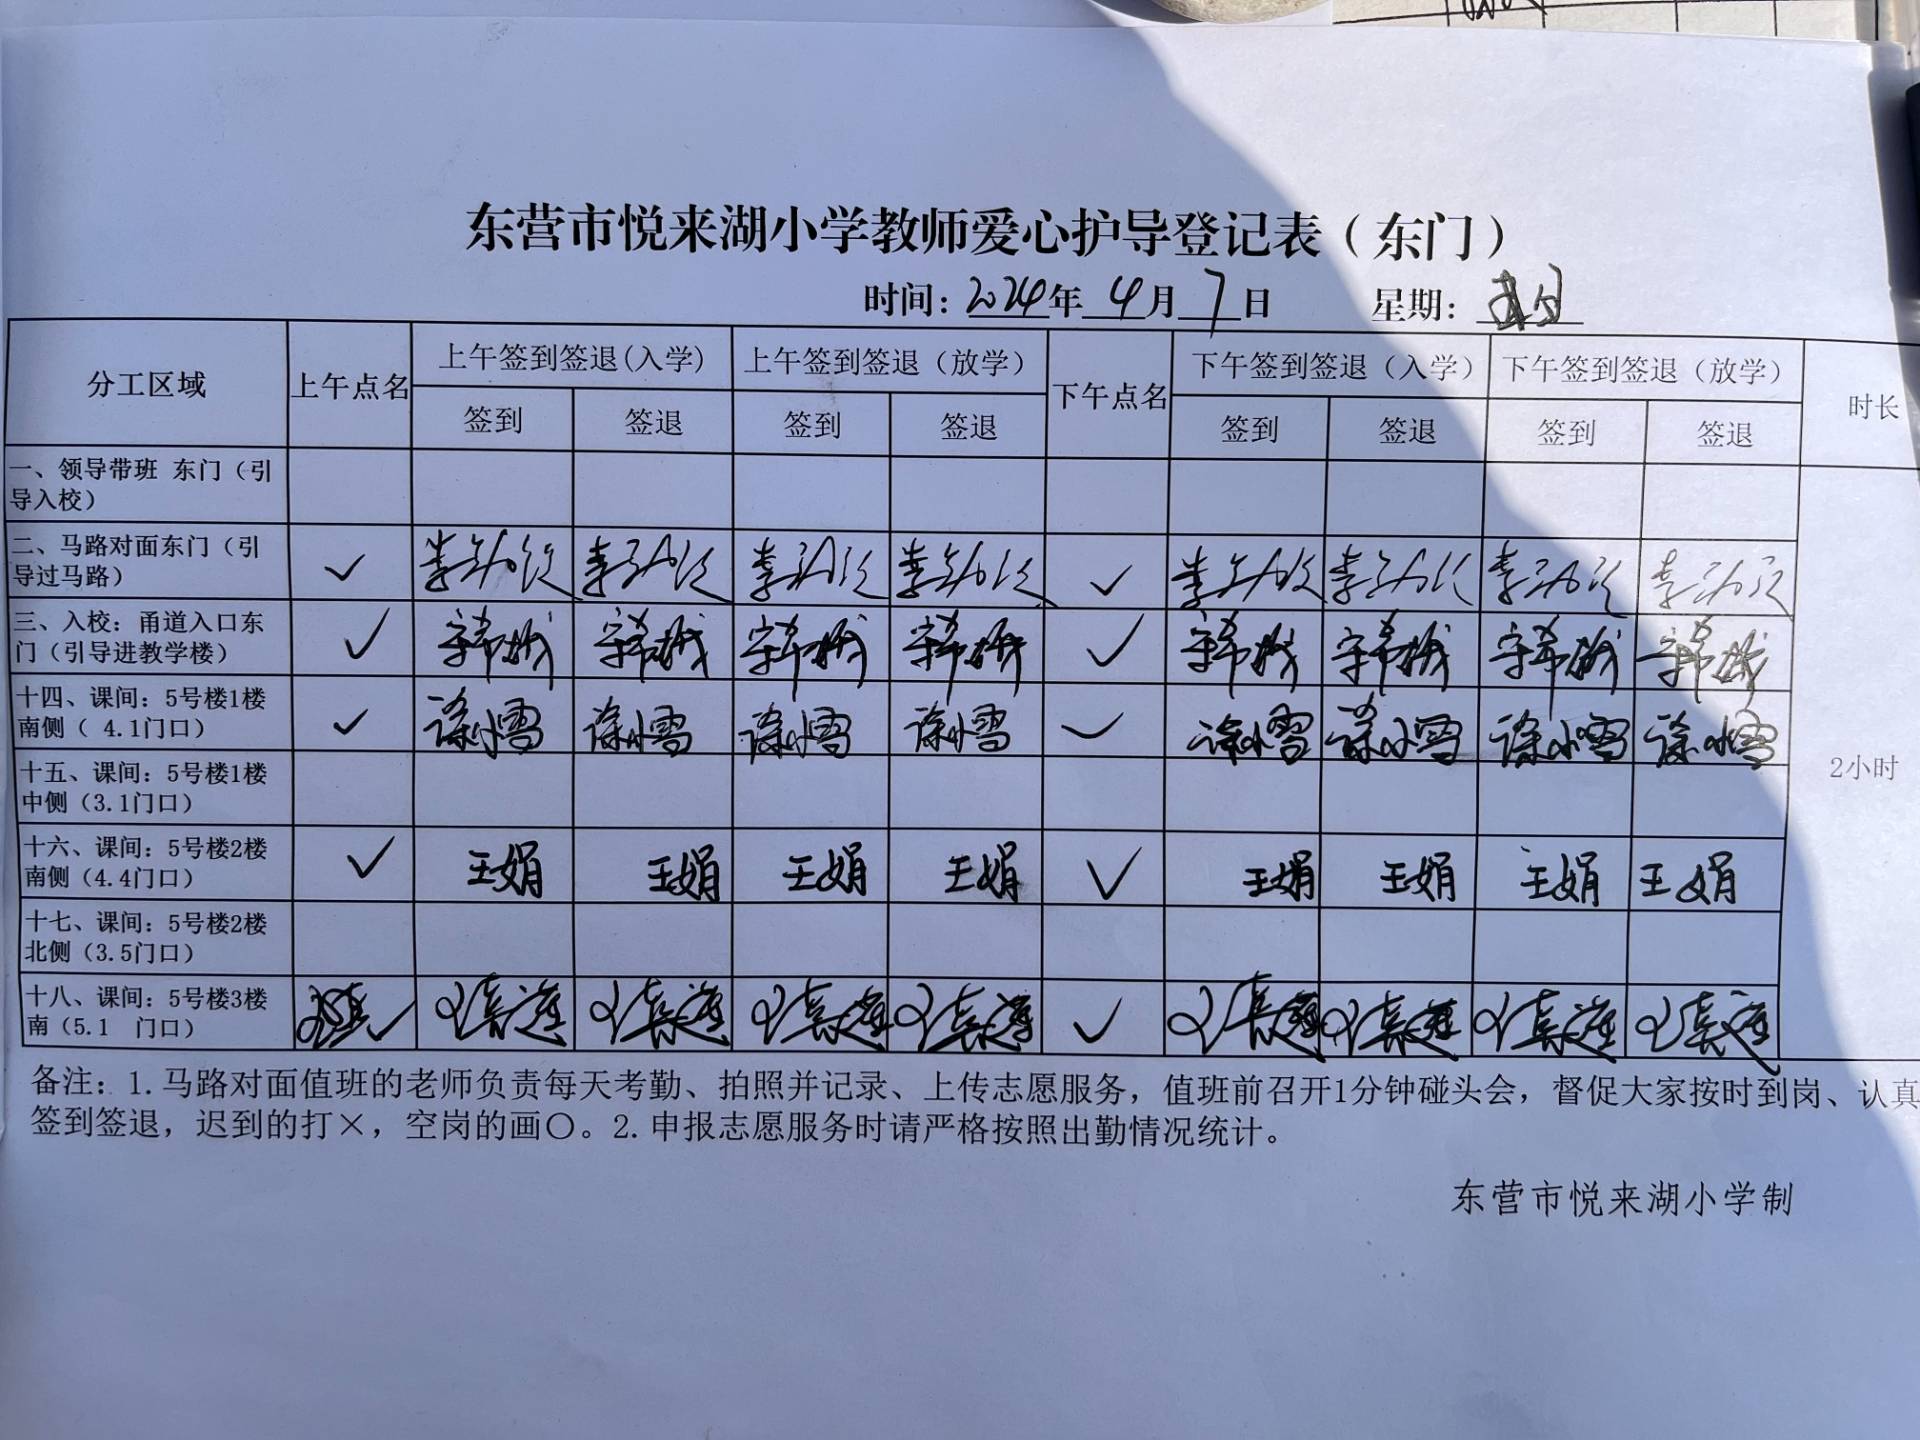 东营市悦来湖小学教师爱心护导登记表（东门）
时间：2024年 4月 7日 星期：日
分工区域 上午点名 上午签到签退(入学) 上午签到签退（放学） 下午点名 下午签到签退（入学） 下午签到签退（放学） 时长
签到 签退 签到 签退 签到 签退 签到 签退
一、领导带班 东门（引
导入校）
二、马路对面东门（引
导过马路） ✓ ✓
三、入校：甬道入口东
门（引导进教学楼） ✓ ✓
十四、课间：5号楼1楼
南侧（ 4.1门口） ✓ 徐小雪 徐小雪 徐小雪 徐小雪 ✓ 徐小雪 徐小雪 徐小雪 徐小雪
十五、课间：5号楼1楼
中侧（3.1门口）
2小时
十六、课间：5号楼2楼
南侧（4.4门口） ✓ 王娟 王娟 王娟 王娟 ✓ 王娟 王娟 王娟 王娟
十七、课间：5号楼2楼
北侧（3.5门口）
十八、课间：5号楼3楼
南（5.1 门口） ✓ ✓
备注：1.马路对面值班的老师负责每天考勤、拍照并记录、上传志愿服务，值班前召开1分钟碰头会，督促大家按时到岗、认真
签到签退，迟到的打×，空岗的画〇。2.申报志愿服务时请严格按照出勤情况统计。
东营市悦来湖小学制